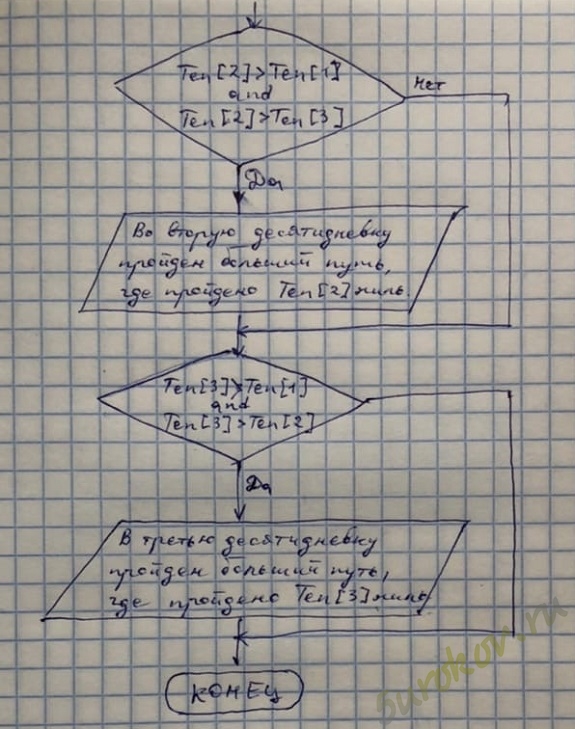 Ten[2]>Ten[1]
and
Ten[2]>Ten[3]
Нет
Да
Во вторую десятидневку
пройден больший путь,
где пройдено Ten[2] миль
Ten[3]>Ten[1]
and
Ten[3]>Ten[2]
Да
В третью десятидневку
пройден больший путь,
где пройдено Ten[3] миль
КОНЕЦ
5urokov.ru